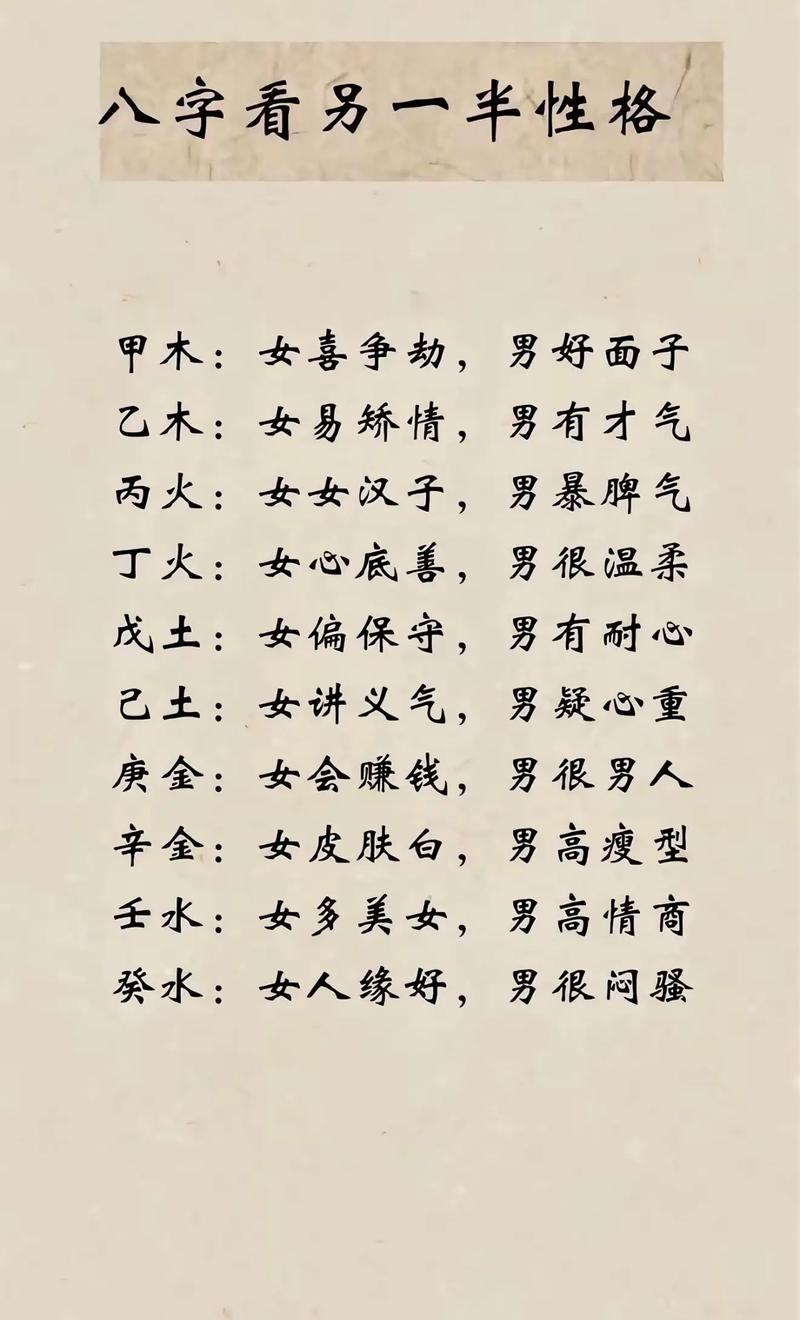 八字看另一半性格
甲木：女喜争劫，男好面子
乙木：女易矫情，男有才气
丙火：女女汉子，男暴脾气
丁火：女心底善，男很温柔
戊土：女偏保守，男有耐心
己土：女讲义气，男疑心重
庚金：女会赚钱，男很男人
辛金：女皮肤白，男高瘦型
壬水：女多美女，男高情商
癸水：女人缘好，男很闷骚